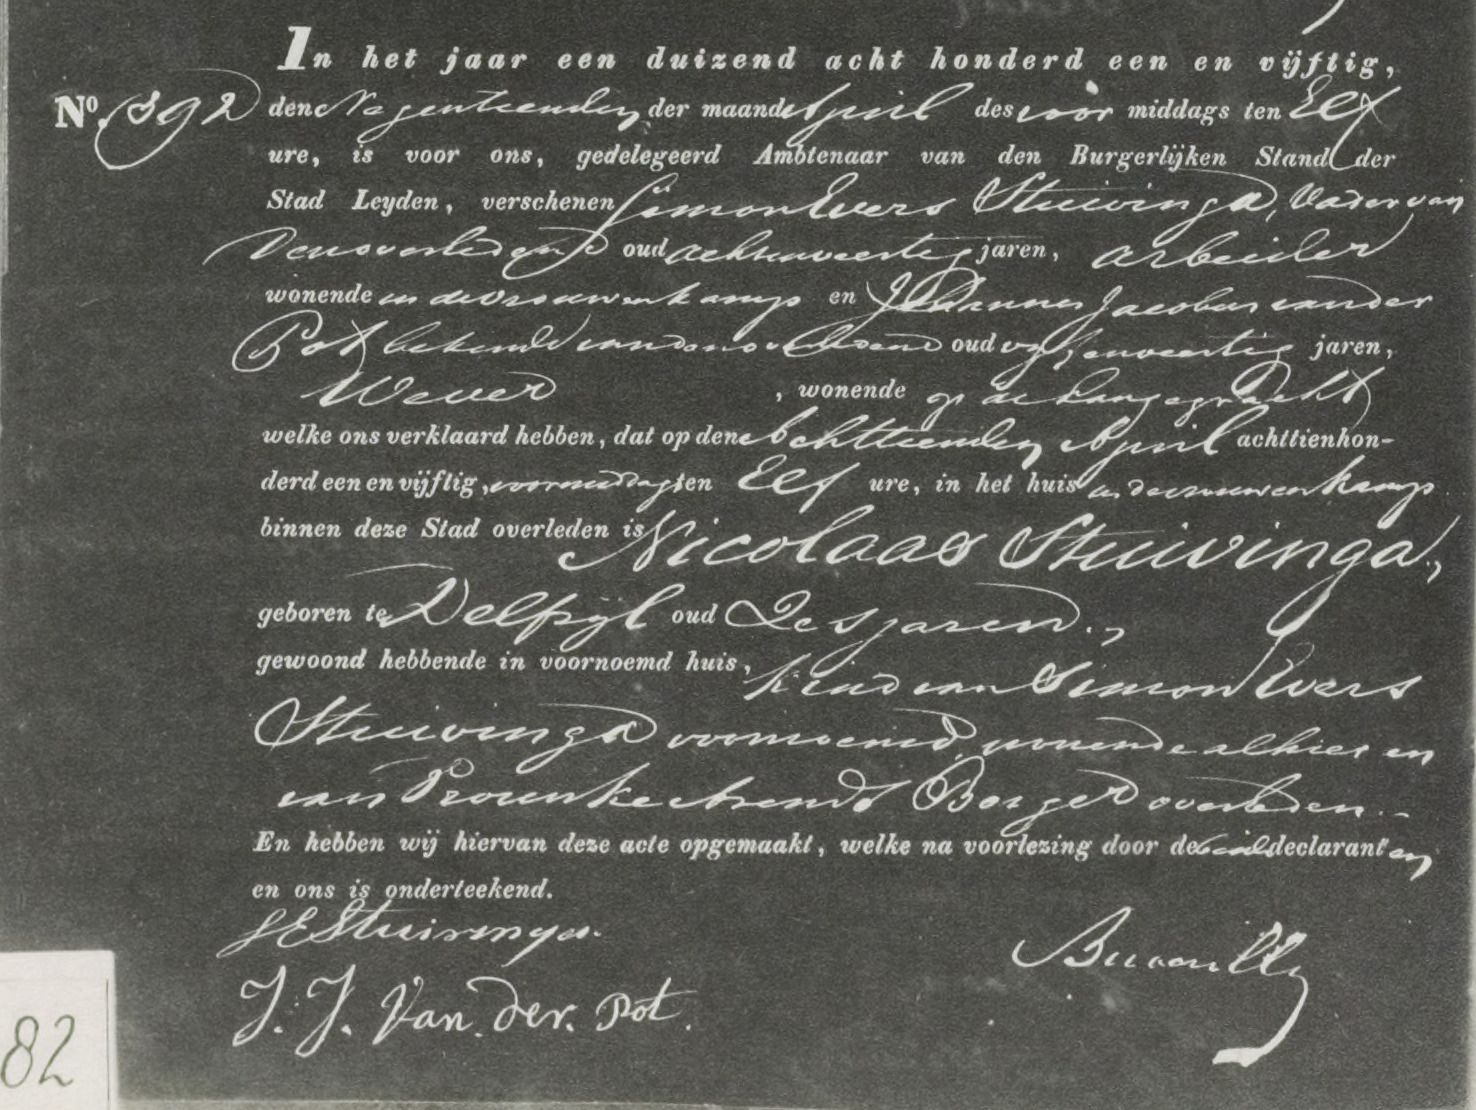 In het jaar een duizend acht honderd een en vijftig,
No. 392 den Negentienden der maand April des voor middags ten Elf
ure, is voor ons, gedelegeerd Ambtenaar van den Burgerlijken Stand der
Stad Leyden, verschenen Simon Evers Stuivinga, Vader van
den overledene oud achtenveertig jaren, arbeider
wonende in de vrouwenkamp en Johannes Jacobus van der
Pot bekende van den overledene oud vijfenveertig jaren,
Wever , wonende op de Langegracht
welke ons verklaard hebben, dat op den Achttienden April achttienhon-
derd een en vijftig, voormiddags ten Elf ure, in het huis in de vrouwenkamp
binnen deze Stad overleden is Nicolaas Stuivinga,
geboren te Delfzyl oud Zes jaren.,
gewoond hebbende in voornoemd huis, kind van Simon Evers
Stuivinga voornoemd, wonende alhier en
van Trouwke Arends Borger overleden.
En hebben wij hiervan deze acte opgemaakt, welke na voorlezing door de beide declaranten
en ons is onderteekend.
S E Stuivinga.
J. J. Van der Pot.
82